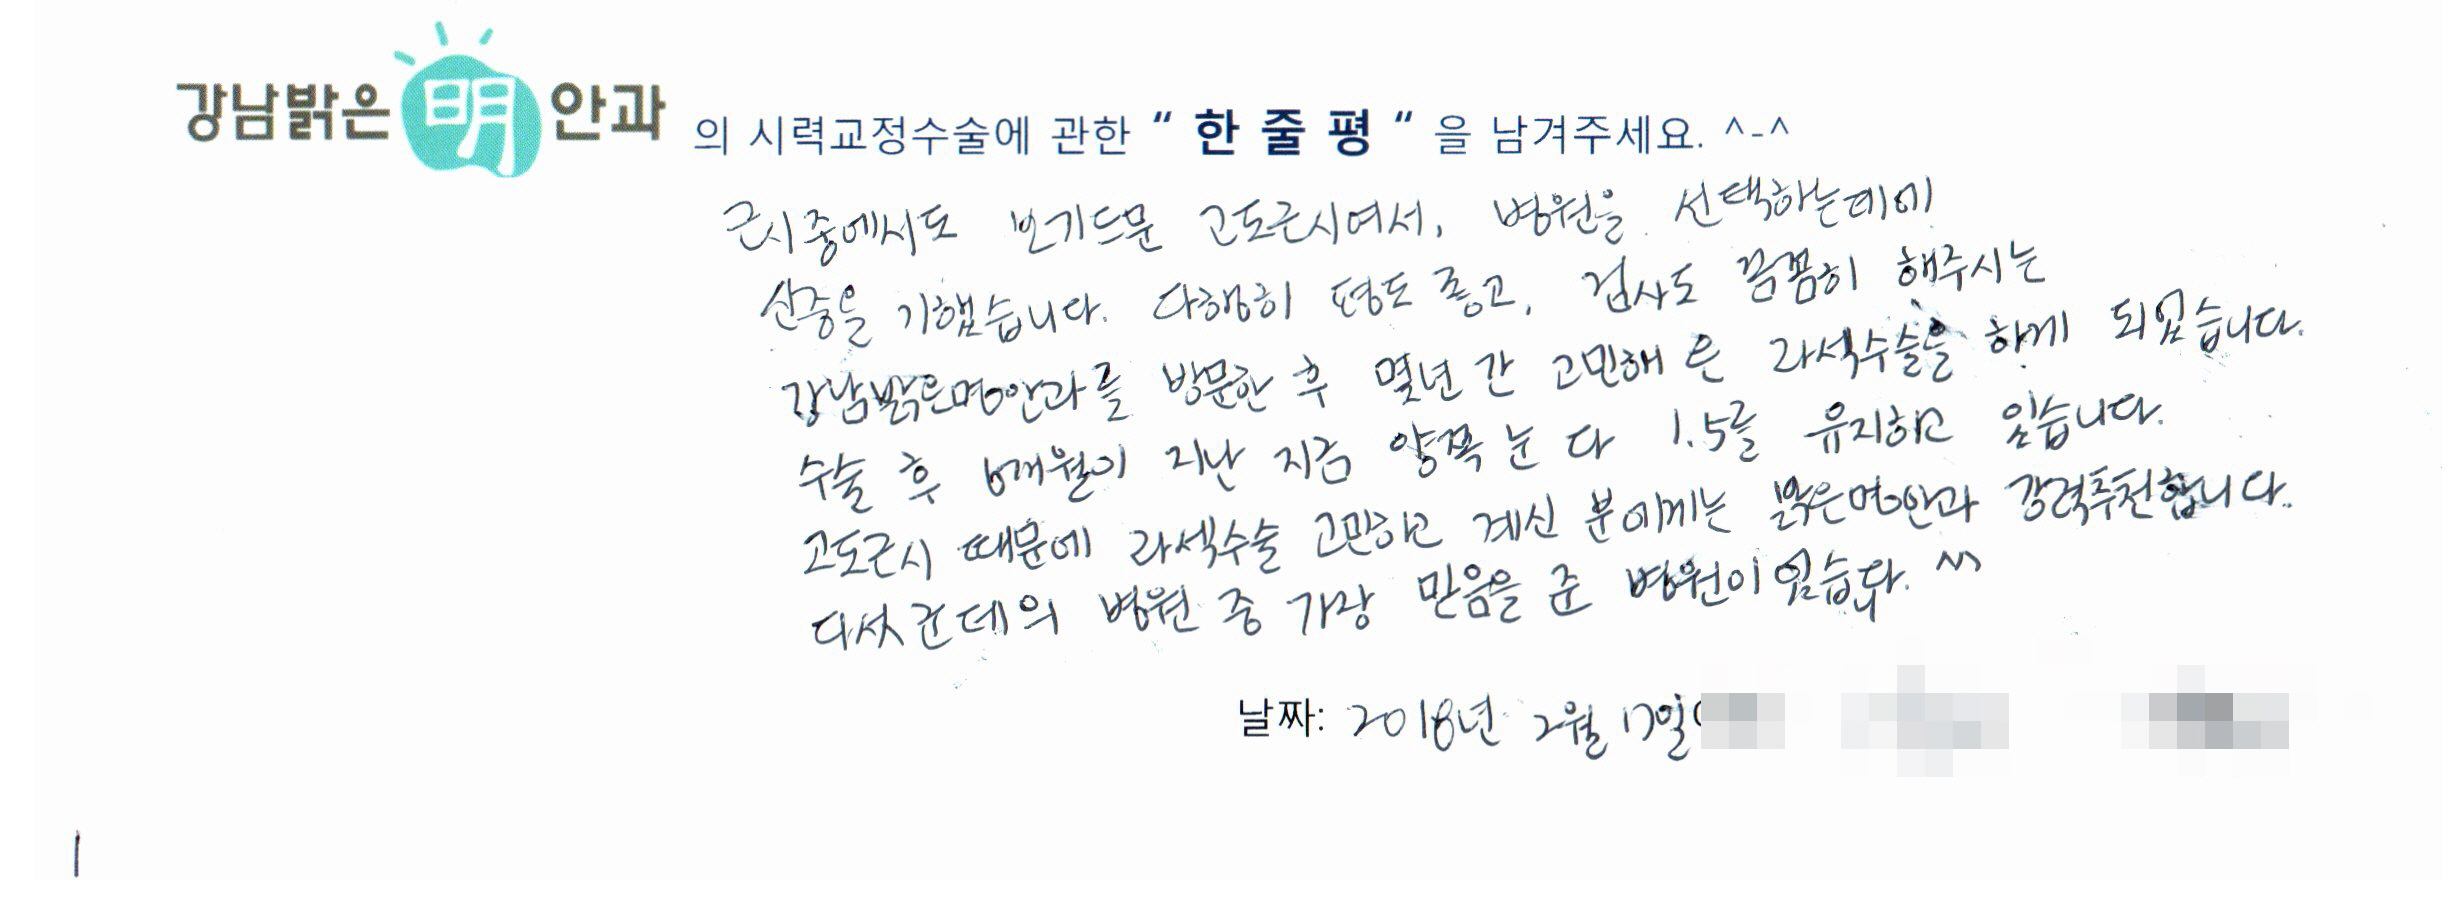 강남밝은明안과 의 시력교정수술에 관한 “ 한 줄 평 “ 을 남겨주세요. ^-^
근시중에서도 보기드문 고도근시여서, 병원을 선택하는데에
신중을 기했습니다. 다행히 평도 좋고, 검사도 꼼꼼히 해주시는
강남밝은명안과를 방문한 후 몇년 간 고민해 온 라섹수술을 하게 되었습니다.
수술 후 6개월이 지난 지금 양쪽 눈 다 1.5를 유지하고 있습니다.
고도근시 때문에 라섹수술 고민하고 계신 분에게는 밝은명안과 강력추천합니다.
다섯군데의 병원 중 가장 믿음을 준 병원이었습니다. ^^
날짜: 2018년 2월 17일(